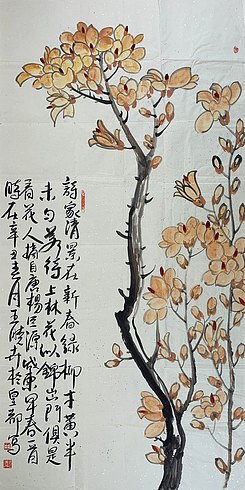 詩家清景在新春綠柳才黃半
未勻若待上林花似錦出門俱是
看花人摘自唐楊巨源城東早春一首
時在辛丑春月王於皇都寫